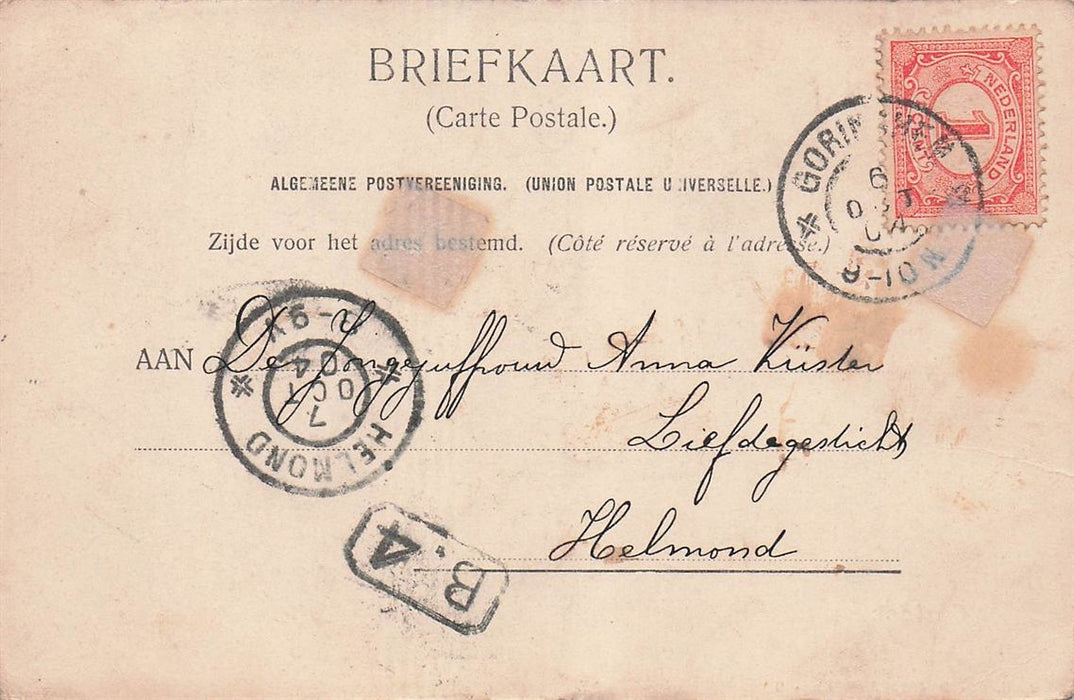 BRIEFKAART.
(Carte Postale.)
ALGEMEENE POSTVEREENIGING. (UNION POSTALE UNIVERSELLE.)
Zijde voor het adres bestemd. (Côté réservé à l'adresse.)
AAN De Jongejuffrouw Anna Küster
Liefdegesticht
Helmond
NEDERLAND
1
CENT
GORINCHEM
6
OCT
04
8-10N
HELMOND
7
OCT
04
B.4